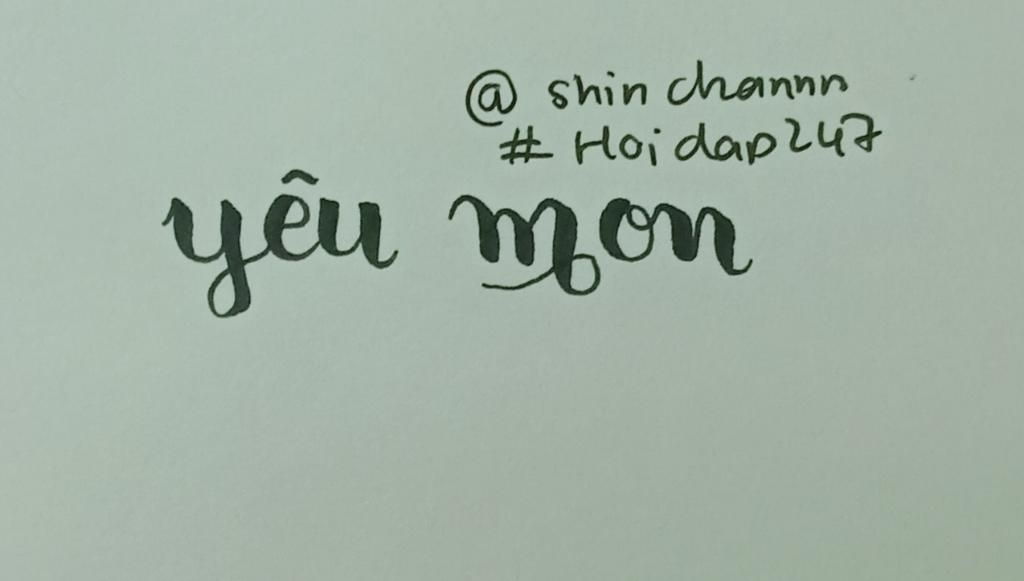 @ shin channn
# Hoidap247
yêu mon